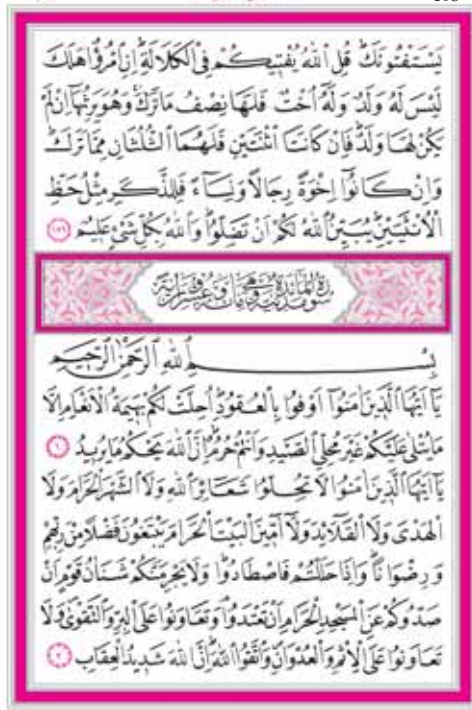 يَسْتَفْتُونَكَ قُلِ اللّٰهُ يُفْتٖيكُمْ فِى الْكَلَالَةِ اِنِ امْرُؤٌا هَلَكَ
لَيْسَ لَهُ وَلَدٌ وَلَهُ اُخْتٌ فَلَهَا نِصْفُ مَا تَرَكَ وَهُوَ يَرِثُهَا اِنْ لَمْ
يَكُنْ لَهَا وَلَدٌ فَاِنْ كَانَتَا اثْنَتَيْنِ فَلَهُمَا الثُّلُثَانِ مِمَّا تَرَكَ
وَاِنْ كَانُوا اِخْوَةً رِجَالًا وَنِسَاءً فَلِلذَّكَرِ مِثْلُ حَظِّ
الْاُنْثَيَيْنِ يُبَيِّنُ اللّٰهُ لَكُمْ اَنْ تَضِلُّوا وَاللّٰهُ بِكُلِّ شَىْءٍ عَلٖيمٌ ﴿١٧٦﴾
سورة المائدة مدنية وهى مائة وعشرون اية
بِسْمِ اللّٰهِ الرَّحْمٰنِ الرَّحٖيمِ
يَا اَيُّهَا الَّذٖينَ اٰمَنُوا اَوْفُوا بِالْعُقُودِ اُحِلَّتْ لَكُمْ بَهٖيمَةُ الْاَنْعَامِ اِلَّا
مَا يُتْلٰى عَلَيْكُمْ غَيْرَ مُحِلِّى الصَّيْدِ وَاَنْتُمْ حُرُمٌ اِنَّ اللّٰهَ يَحْكُمُ مَا يُرٖيدُ ﴿١﴾
يَا اَيُّهَا الَّذٖينَ اٰمَنُوا لَا تُحِلُّوا شَعَائِرَ اللّٰهِ وَلَا الشَّهْرَ الْحَرَامَ وَلَا
الْهَدْىَ وَلَا الْقَلَائِدَ وَلَا اٰمّٖينَ الْبَيْتَ الْحَرَامَ يَبْتَغُونَ فَضْلًا مِنْ رَبِّهِمْ
وَرِضْوَانًا وَاِذَا حَلَلْتُمْ فَاصْطَادُوا وَلَا يَجْرِمَنَّكُمْ شَنَاٰنُ قَوْمٍ اَنْ
صَدُّوكُمْ عَنِ الْمَسْجِدِ الْحَرَامِ اَنْ تَعْتَدُوا وَتَعَاوَنُوا عَلَى الْبِرِّ وَالتَّقْوٰى وَلَا
تَعَاوَنُوا عَلَى الْاِثْمِ وَالْعُدْوَانِ وَاتَّقُوا اللّٰهَ اِنَّ اللّٰهَ شَدٖيدُ الْعِقَابِ ﴿٢﴾